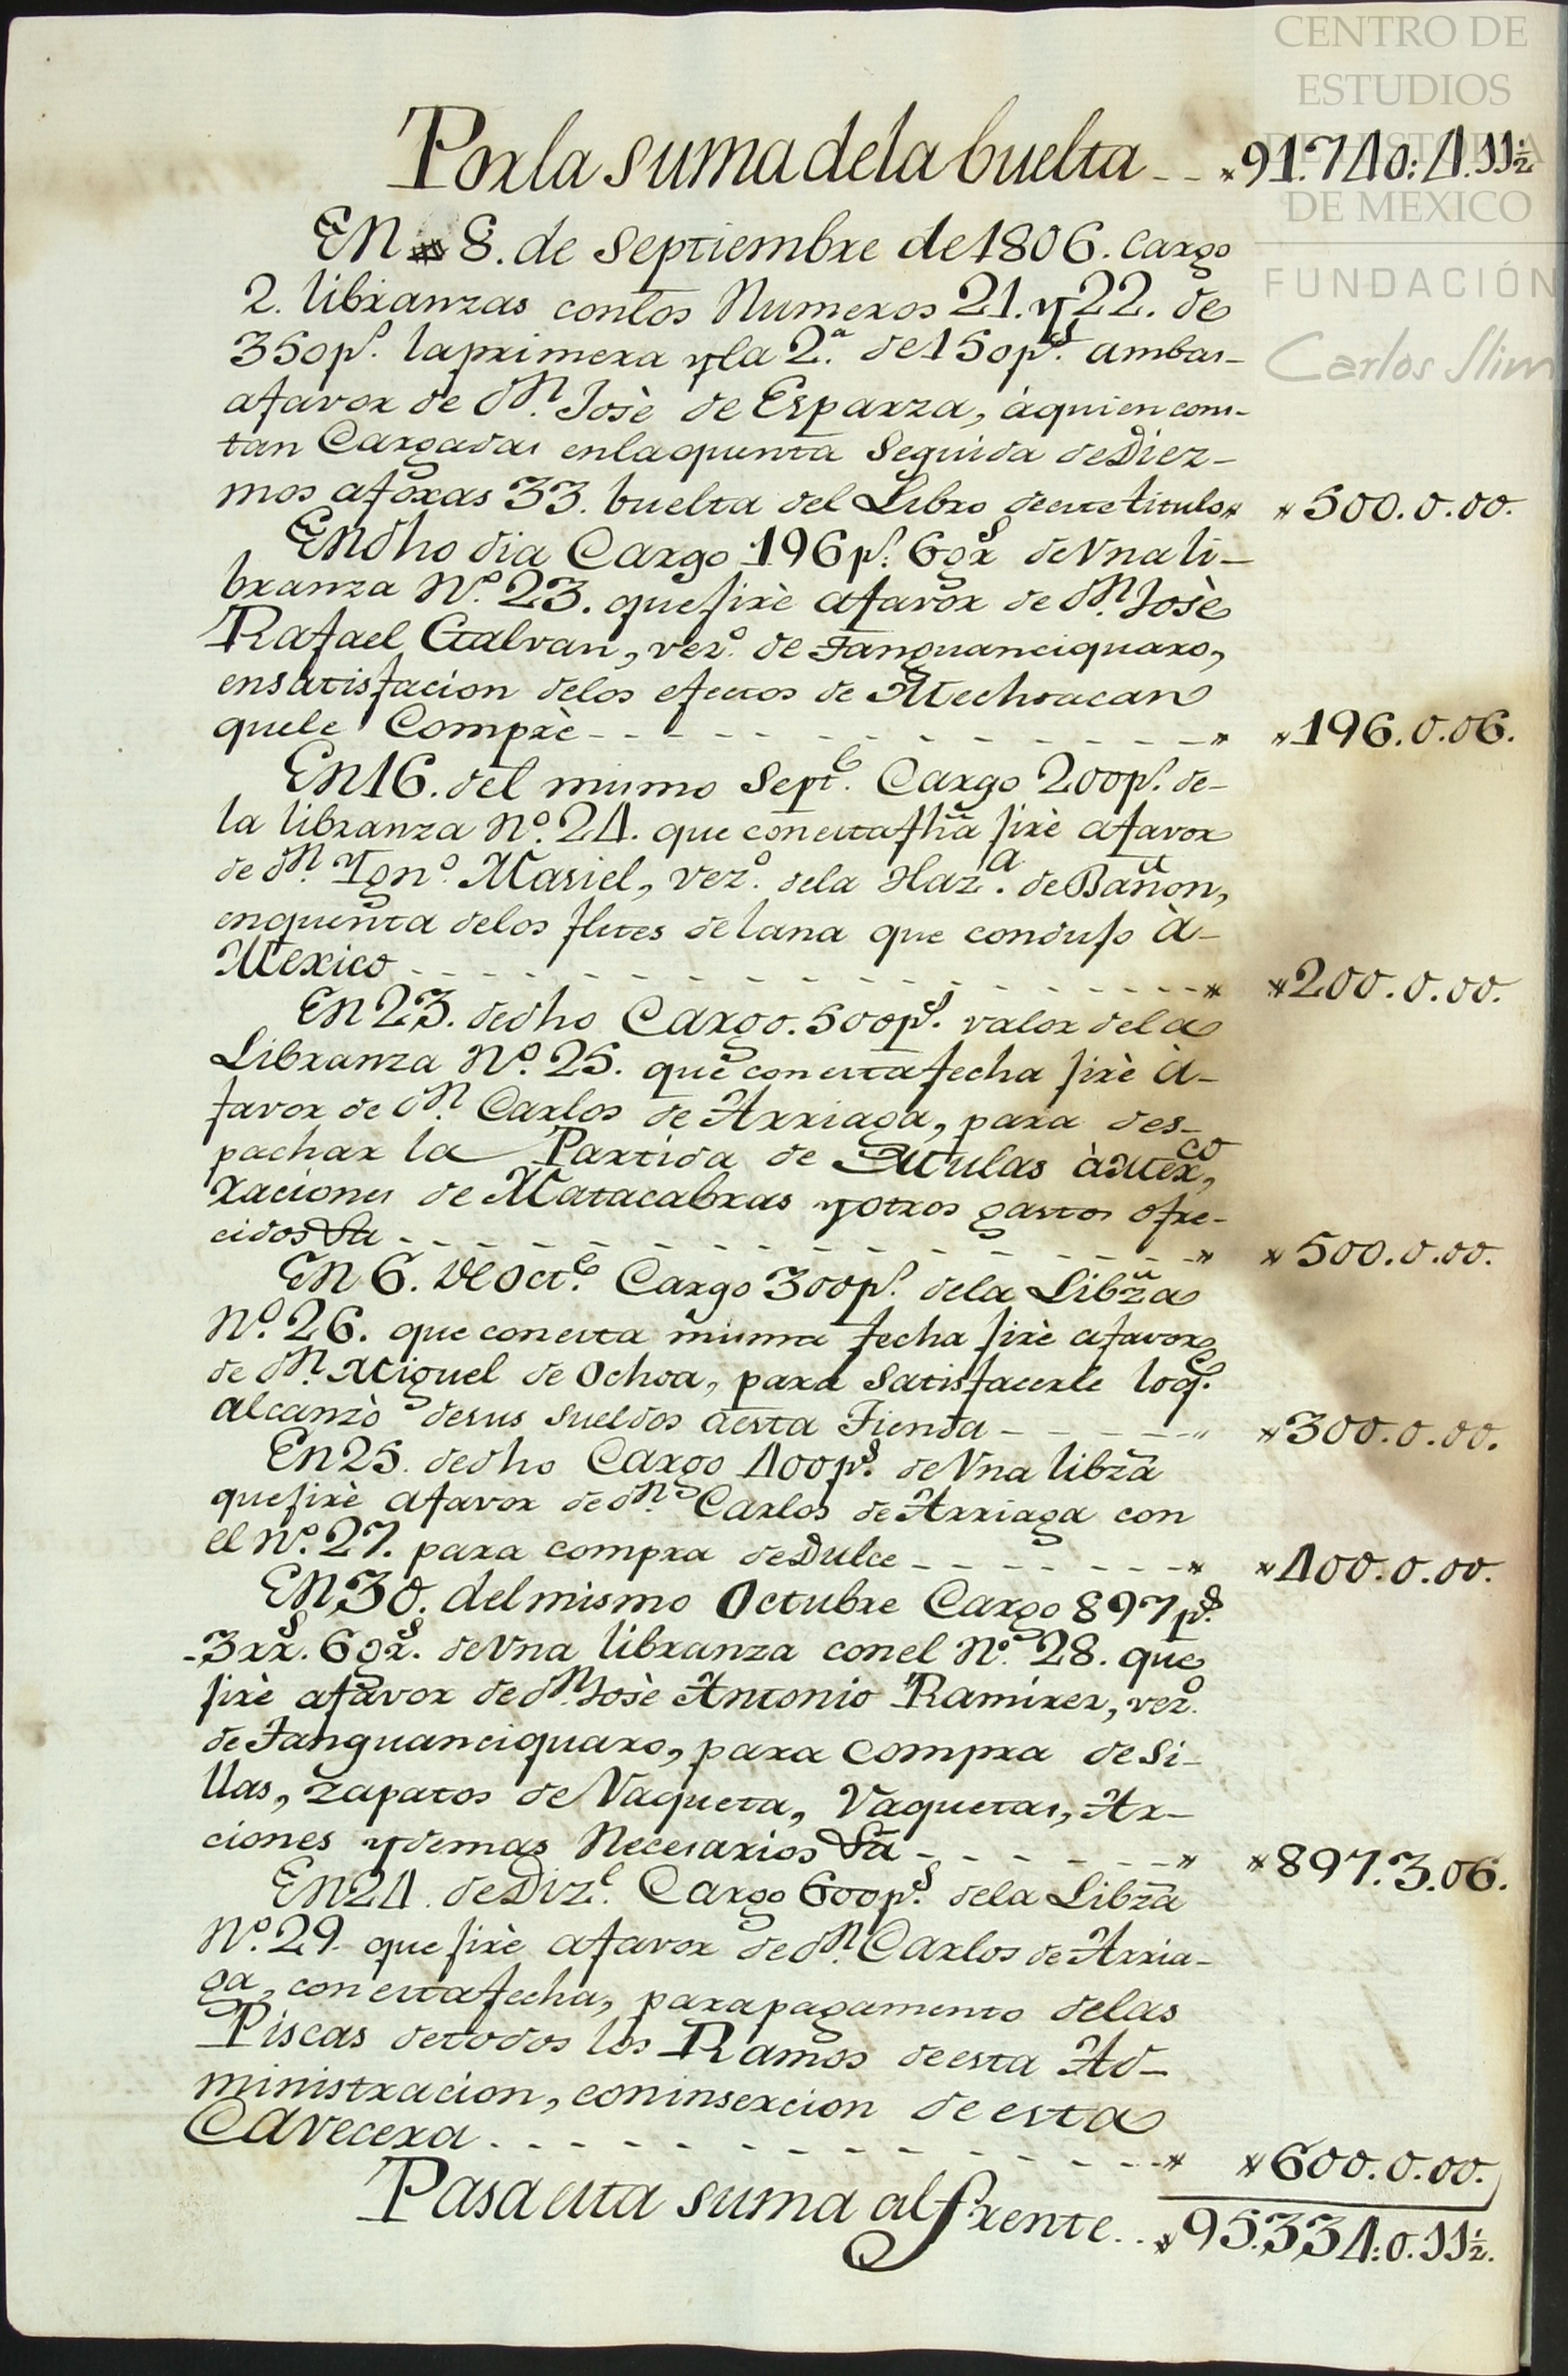 CENTRO DE
ESTUDIOS
DE HISTORIA
DE MEXICO
FUNDACIÓN
Carlos Slim
Por la suma de la buelta - - 91.740:4.11½
En 8. de Septiembre de 1806. Cargo
2. libranzas con los Numeros 21. y 22. de
350 ps. la primera y la 2.a de 150 ps. ambas
a favor de Dn. Josè de Esparza, à quien cons-
tan Cargadas en la quenta Seguida de Diez-
mos a foxas 33. buelta del Libro de este titulo 500.0.00.
En dho dia Cargo 196 ps. 6 gs de Vna li-
branza No. 23. que jirè a favor de Dn. Josè
Rafael Galvan, vezo. de Tanguanciquaro,
en satisfacion de los efectos de Mechoacan
que le Comprè - - - - 196.0.06.
En 16. del mismo Septe. Cargo 200 ps. de
la libranza No. 24. que con esta fha jirè a favor
de Dn. Igno. Masiel, vezo. de la Haza. de Bañon,
en quenta de los fletes de lana que condujo à
Mexico - - - - 200.0.00.
En 23. de dho Cargo. 500 ps. valor de la
Libranza No. 25. que con esta fecha jirè à
favor de Dn. Carlos de Arriaga, para des-
pachar la Partida de Mulas à Mexco,
raciones de Matacabras y otros gastos ofre-
cidos Va - - - - 500.0.00.
En 6. de Octe. Cargo 300 ps. de la Libza
No. 26. que con esta misma fecha jirè a favor
de Dn. Miguel de Ochoa, para Satisfacerle loq.e
alcanzò de sus Sueldos a esta Tienda - - - - 300.0.00.
En 25. de dho Cargo 400 ps. de Vna libza
que jirè a favor de Dn. Carlos de Arriaga con
el No. 27. para compra de Dulce - - - - 400.0.00.
En 30. del mismo Octubre Cargo 897 ps.
3 rrs. 6 grs. de Vna libranza con el No. 28. que
jirè a favor de Dn. Josè Antonio Ramirez, vezo.
de Tanguanciquaro, para compra de Si-
llas, zapatos de Vaqueta, Vaquetas, Ar-
ciones y demas Necesarios Va - - - - 897.3.06.
En 24. de Dize. Cargo 600 ps. de la Libza
No. 29. que jirè a favor de Dn. Carlos de Arria-
ga, con esta fecha, para pagamento de las
Piscas de todos los Ramos de esta Ad-
ministracion, con insercion de esta
Cavecera. - - - - 600.0.00.
Pasa esta suma al frente. . 95.334:0.11½.